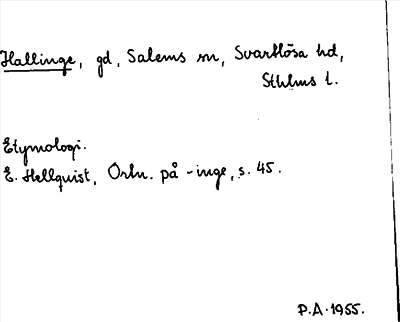 Hallinge, gd, Salems sn, Svartlösa hd,
Sthlms l.
Etymologi.
E. Hellquist, Ortn. på -inge, s. 45.
P.A. 1955.